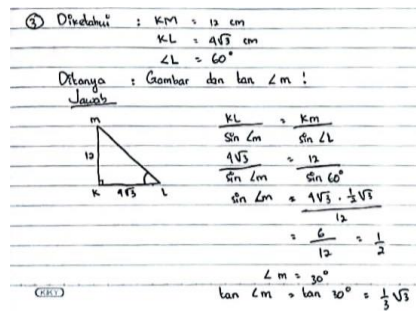 ③ Diketahui : KM = 12 cm
KL = 4√3 cm
∠L = 60°
Ditanya : Gambar dan tan ∠m !
Jawab
m
12
K 4√3 L
KL / sin ∠m = KM / sin ∠L
4√3 / sin ∠m = 12 / sin 60°
sin ∠m = 4√3 . ½√3 / 12
= 6/12 = 1/2
∠m = 30°
tan ∠m = tan 30° = ⅓√3
KKY